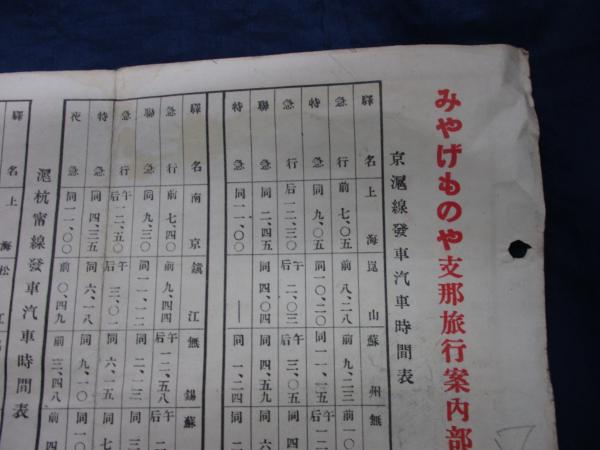 みやげものや支那旅行案內部
京滬線發車汽車時間表
驛名 上海 崑山 蘇州 無
急行 前七、〇五 前八、二八 前九、二三 前一〇
特急 同九、〇五 同一〇、二〇 同一一、一五
急行 午后一二、三〇 午后二、〇三 午后三、〇五
聯急 同二、四五 同四、〇四 同四、五九
特急 同一一、〇〇 — 同一、二四
驛名 南京 鎭江 無錫 蘇
急行 前七、四〇 前九、四四 午后一二、五八
聯急 同九、三〇 同一一、一二 同二、一三
急行 午后一二、五〇 午后三、〇一 同六、一五
特急 同四、三五 同六、一八 同九、一〇
夜急 同一一、〇〇 前〇、四九 前三、四八
滬杭甯線發車汽車時間表
驛名 上海 松江